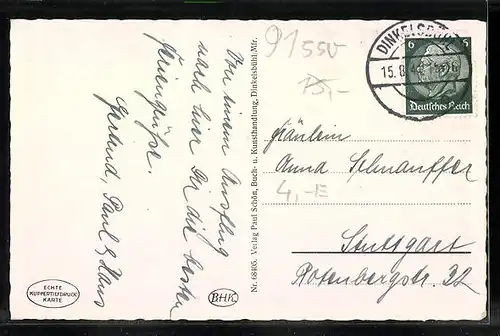 Von einem Ausflug
nach hier Dir die besten
Feriengrüße.
Gertrud, Paul & Hans
ECHTE
KUPFERTIEFDRUCK
KARTE
BHK
Nr. 68405. Verlag Paul Schön, Buch- u. Kunsthandlung, Dinkelsbühl/Mfr.
91550
15,-
DINKELSBÜHL
15.8
6 5
Deutsches Reich
Fräulein
Anna Schnauffer
4,-E
Stuttgart
Rotenbergstr. 22